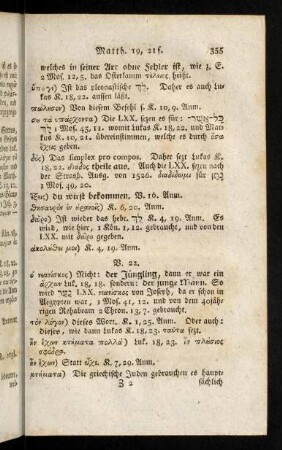 Matth. 19, 21f. 355
welches in seiner Art ohne Fehler ist, wie z. E.
2 Mos. 12, 5. das Osterlamm τέλειος heißt.
ὕπαγε) Ist das pleonastische לך. Daher es auch Lukas
K. 18, 22. aussen läßt.
πώλησον) Von diesem Befehl s. K. 10, 9. Anm.
σὰ τὰ ὑπάρχοντα) Die LXX. setzen es für
1 Mos. 45, 11. womit Lukas K. 18, 22. und Markus
K. 10, 21. übereinstimmen, welche es durch ὅσα
ἔχεις geben.
δός) Das simplex pro compos. Daher sezt Lukas K.
18, 22. διάδος theile aus. Auch die LXX. sezen nach
der Strasb. Ausg. von 1526. διαδίδωμι für נתן
1 Mos. 49, 20.
ἕξεις) du wirst bekommen. V. 16. Anm.
θησαυρὸν ἐν οὐρανοῖς) K. 6, 20. Anm.
δεῦρο) Ist wieder das hebr. לך K. 4, 19. Anm. Es
wird, wie hier, 1 Kön. 1, 12. gebraucht, und von
den LXX. mit δεῦρο gegeben.
ἀκολούθει μοι) K. 4, 19. Anm.
V. 22.
ὁ νεανίσκος) Nicht: der Jüngling, dann er war ein
ἄρχων Luk. 18, 18. sondern: der junge Mann. So
wird נער LXX. νεανίσκος von Joseph, da er schon in
Aegypten war, 1 Mos. 41, 12. und von dem 40jährigen
Rehabeam 2 Chron. 13, 7. gebraucht.
τὸν λόγον) dieses Wort. K. 1, 25. Anm. Oder auch:
Dieses, wie dann Lukas K. 18, 23. ταῦτα sezt.
ἦν ἔχων κτήματα πολλά) Luk. 18, 23. ἦν πλούσιος
σφόδρα.
ἦν ἔχων) Statt εἶχε. K. 7, 29. Anm.
κτήματα) Die griechische Juden gebrauchen es haupt-
Z 2 sächlich